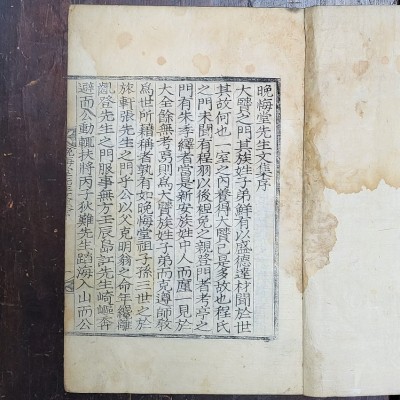 晩悔堂先生文集序
大賢之門其族姓子弟鮮有以盛德達材聞於世
其故何也一室之內養得大賢已是多故也程氏
之門未聞有程羽以後緦免之親登門者考亭之
門有朱季繹者當是新安族姓中人而廑一見於
大全餘無考焉則爲大賢族姓子弟而克遵師敎
爲世所稱者孰有如晩悔堂祖子孫三世之於
旅軒張先生之門乎公以父克明翁之命年纔
亂登先生之門服事無方壬辰島訌先生崎嶇奔
避而公動輒扶將丙子狄難先生蹈海入山而公